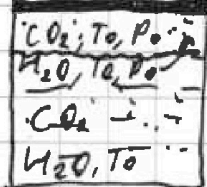 CO₂; T₀, P₀
H₂O, T₀, P₀
CO₂ – . –
H₂O, T₀ –